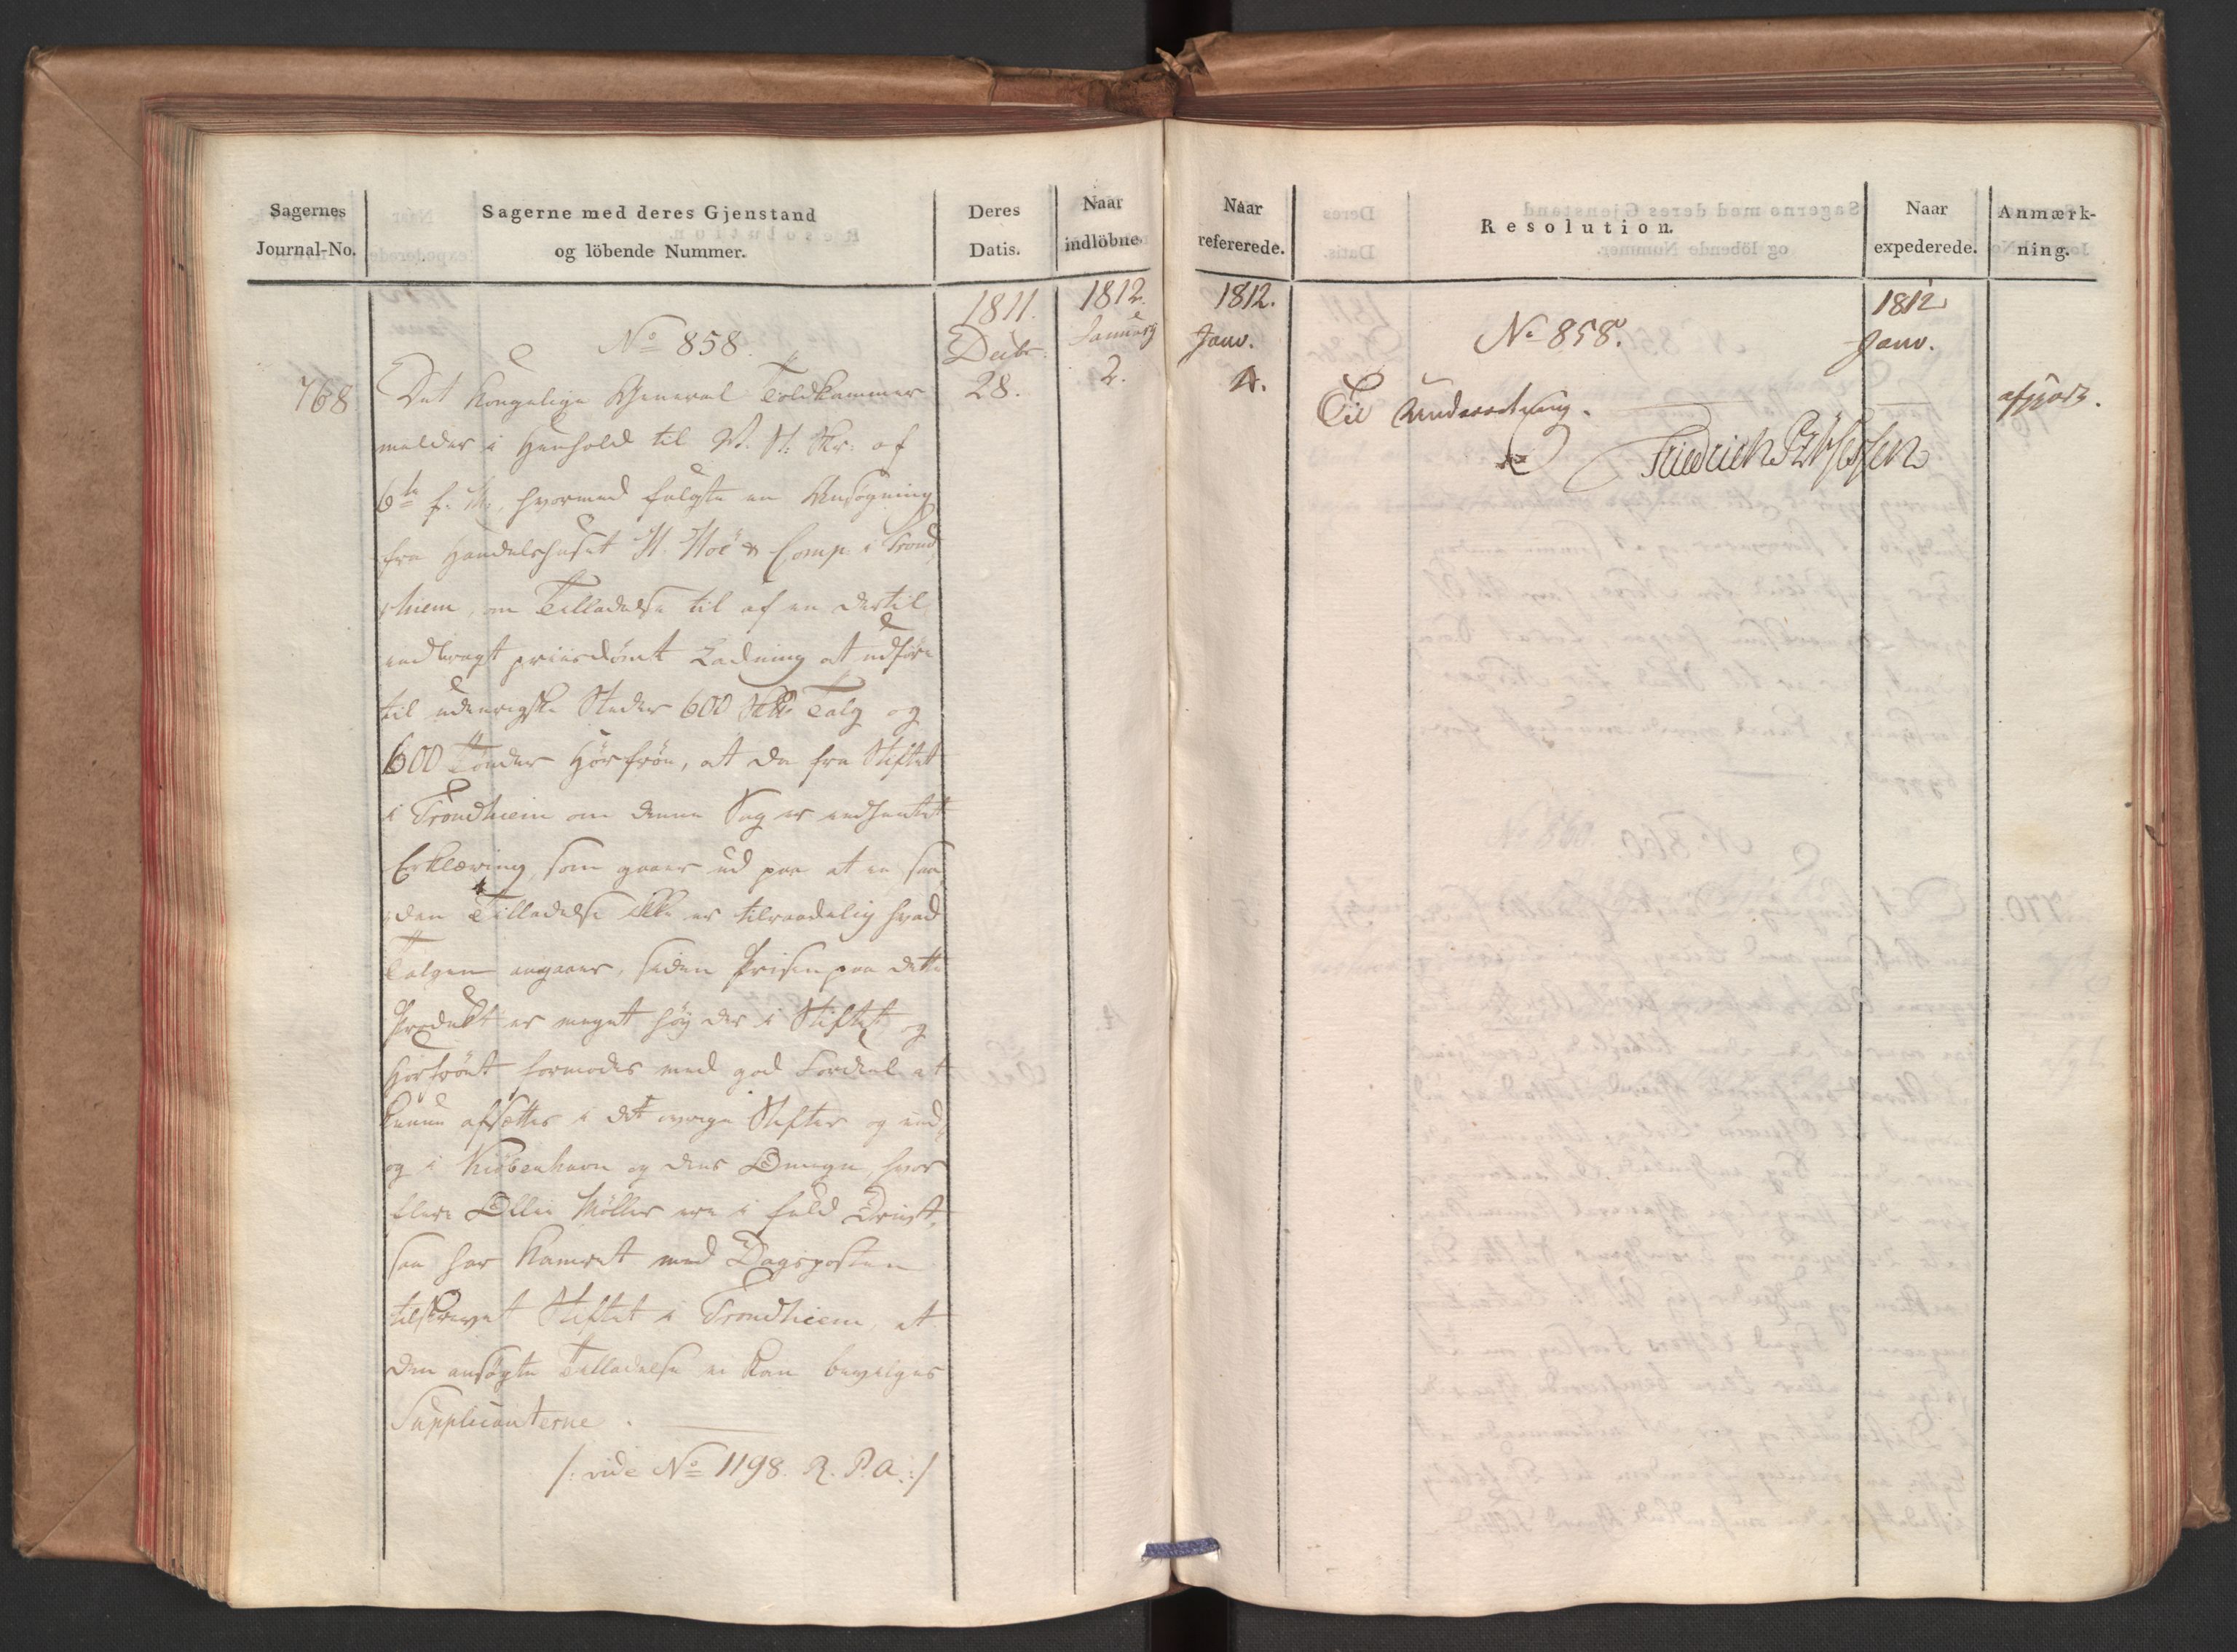 Sagernes
Journal-No.
Sagerne med deres Gjenstand
og löbende Nummer.
Deres
Datis.
Naar
indlöbne.
1811.
1812.
No 858.
Decbr.
January
768
Det Kongelige General Toldkammer
28.
2.
melder i Henhold til V. St. Skr: af
6te f. M., hvormed fulgte en Ansøgning
fra Handelshuset H. Hoë & Comp. i Trond-
hiem, om Tilladelse til af en dertil
indbragt priisdömt Ladning at udföre
til udenrigske Steder 600 Talg og
600 Tönder Hörfröe, at da fra Stiftet
i Trondhiem om denne Sag er indhentet
Erklæring, som gaaer ud paa at en saa-
dan Tilladelse ikke er tilraadelig hvad
Talgen angaaer, siden Prisen paa dette
Produkt er meget höy der i Stiftet og
Hörfröet formodes med god Fordeel at
kunne afsættes i det övrige Stifter og end-
og i Kiöbenhavn og dens Omegn, hvor
flere Ollie Möller ere i fuld Drivt,
saa har Kamret med Dagsposten
tilskrevet Stiftet i Trondhiem, at
den ansögte Tilladelse ei kan bevilges
Supplicanterne.
/: vide No 1198. R. P. A. :/
Naar
refererede.
Resolution.
Naar
expederede.
Anmærk-
ning.
1812.
1812
No 858.
Janv.
Janv.
4.
Til Underretning.
afgjort.
Friedrich